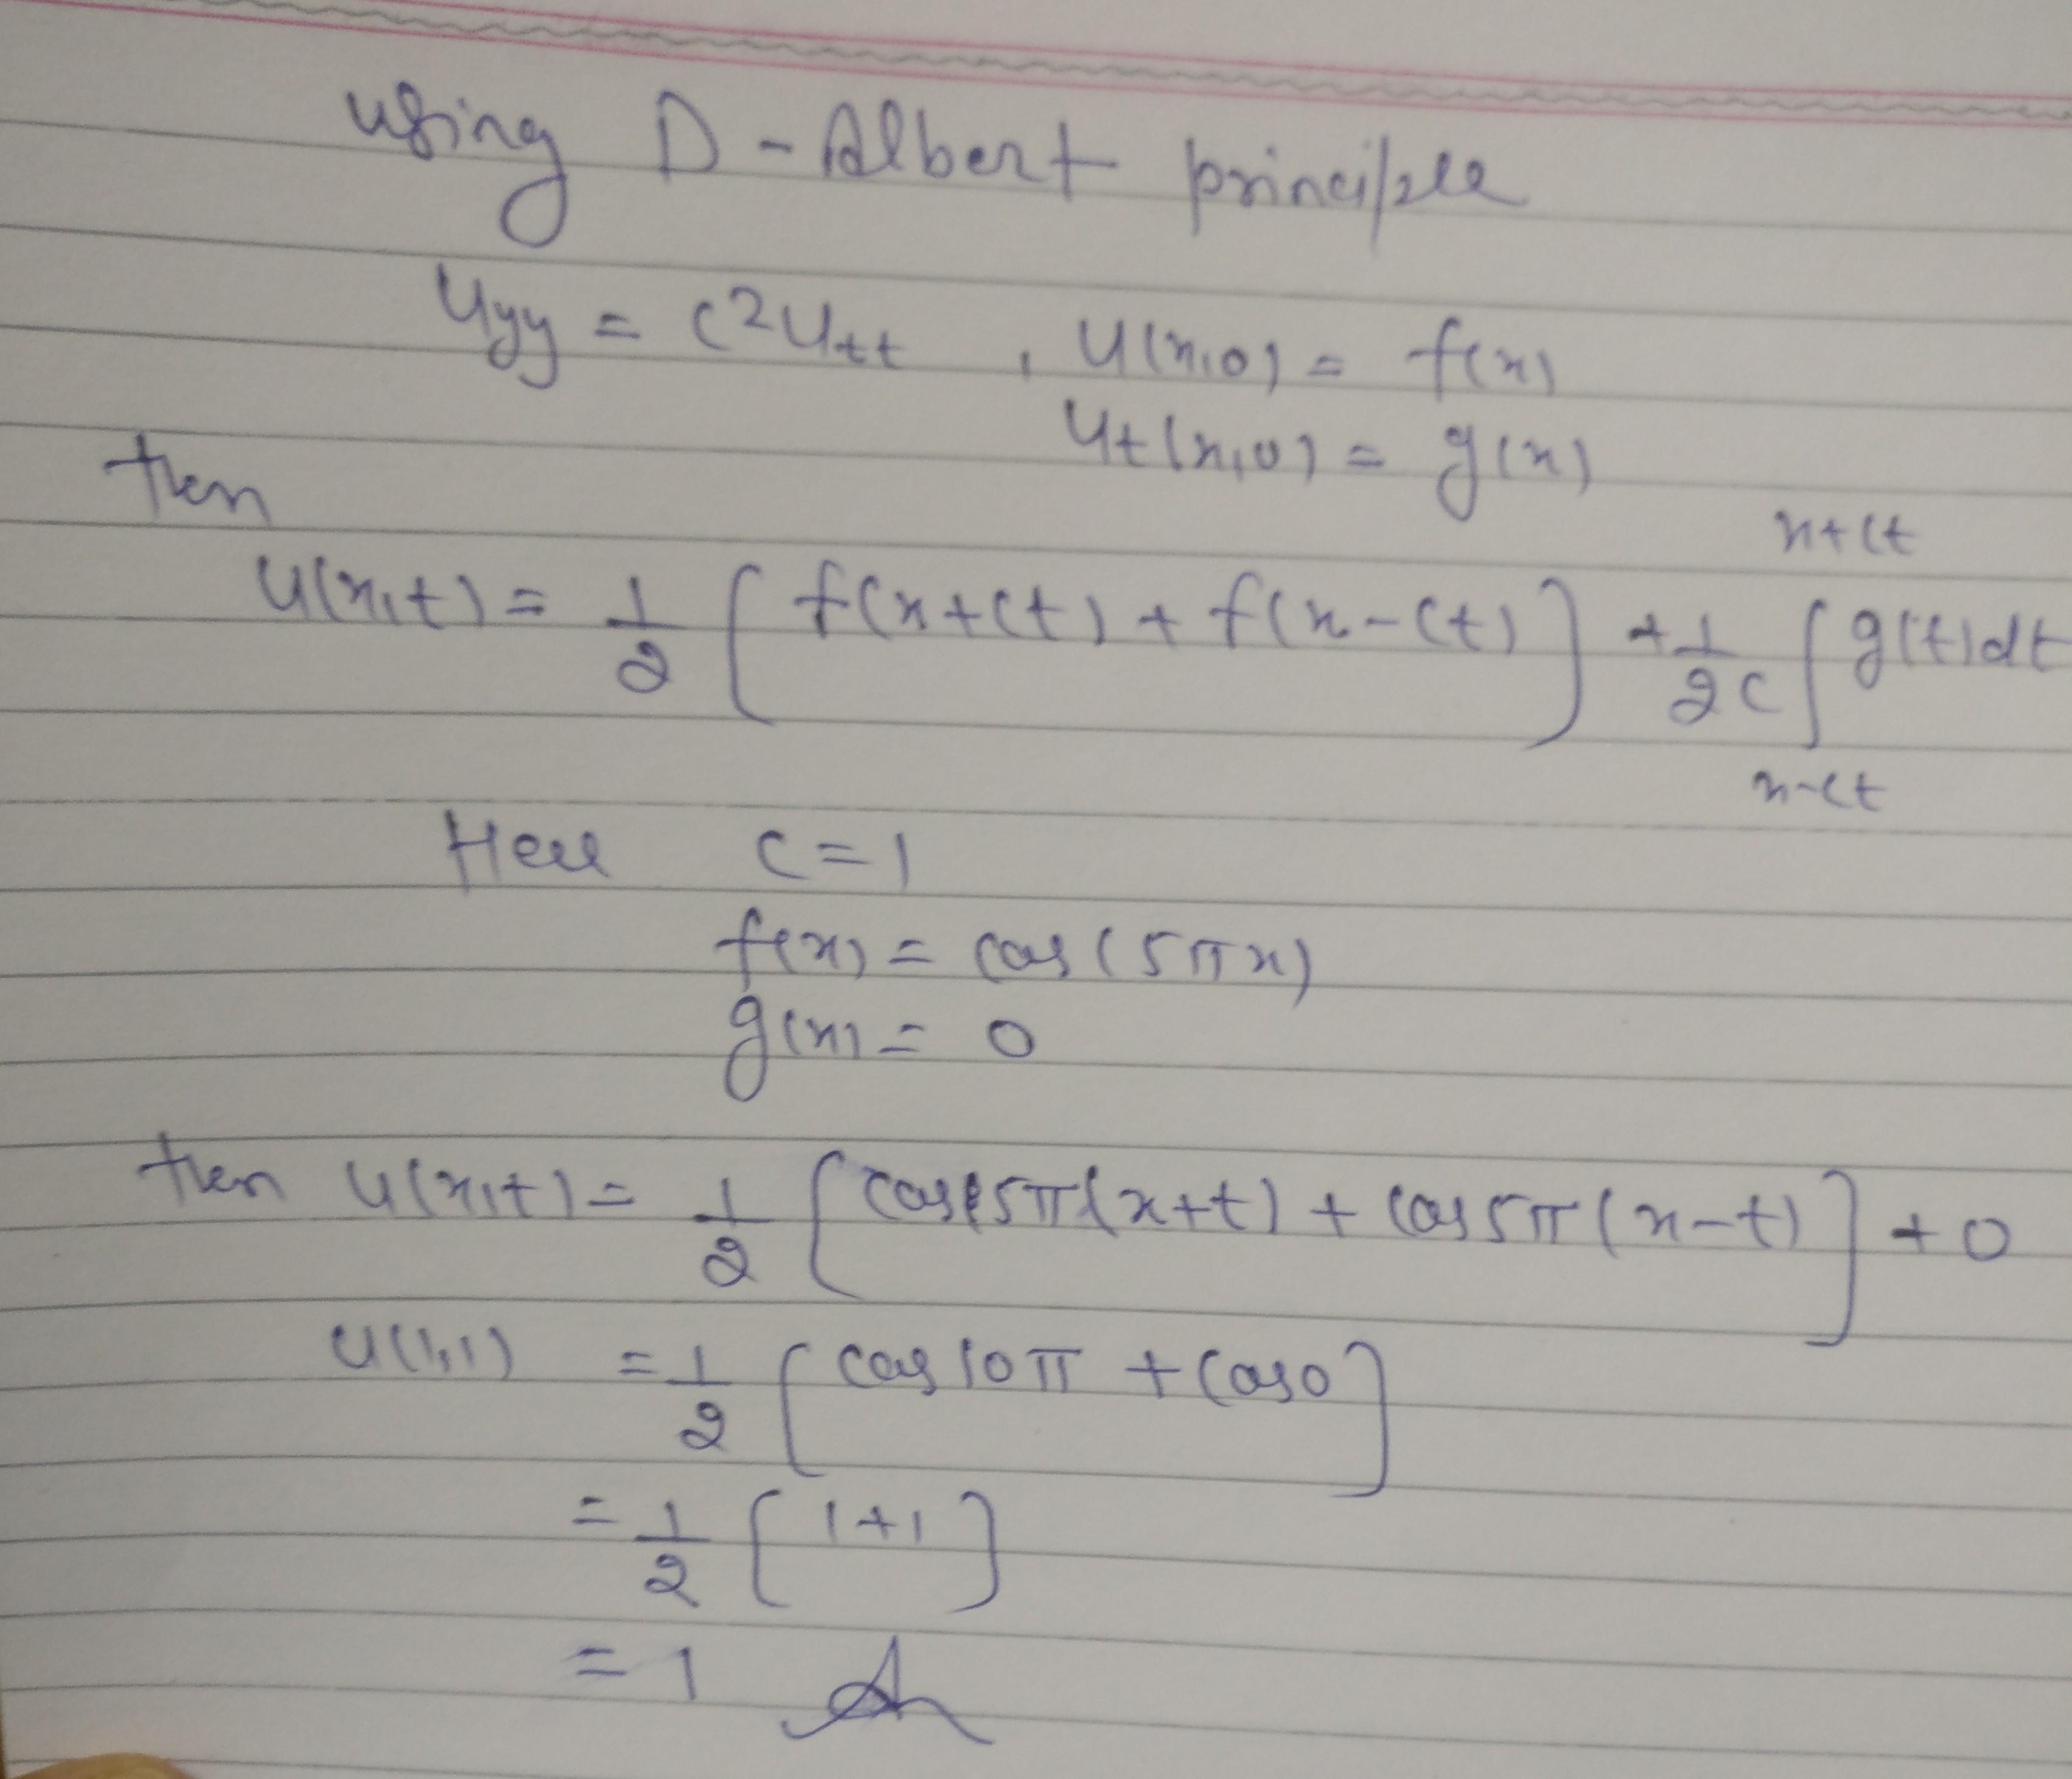 using D-Albert principle
Uyy = c²Utt , U(x,0) = f(x)
Ut(x,0) = g(x)
then
U(x,t) = 1/2 [f(x+ct) + f(x-ct)] + 1/2c ∫_{x-ct}^{x+ct} g(t)dt
Here c=1
f(x) = cos(5πx)
g(x) = 0
then U(x,t) = 1/2 [cos5π(x+t) + cos5π(x-t)] + 0
U(1,1) = 1/2 [cos10π + cos0]
= 1/2 [1+1]
= 1